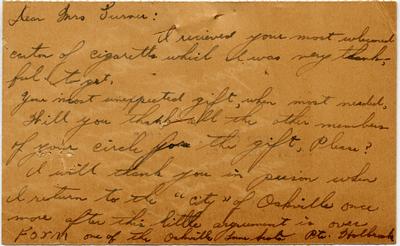 Dear Mrs Turner:
I recieved your most welcomed
carton of cigaretts which I was very thank-
ful to get.
Your most unexpected gift, when most needed,
Will you thank all the other members
of your circle for the gift, Please?
I will thank you in person when
I return to the "city" of Oakville once
more after this little argument is over
From one of the Oakville Pte. Holbrook